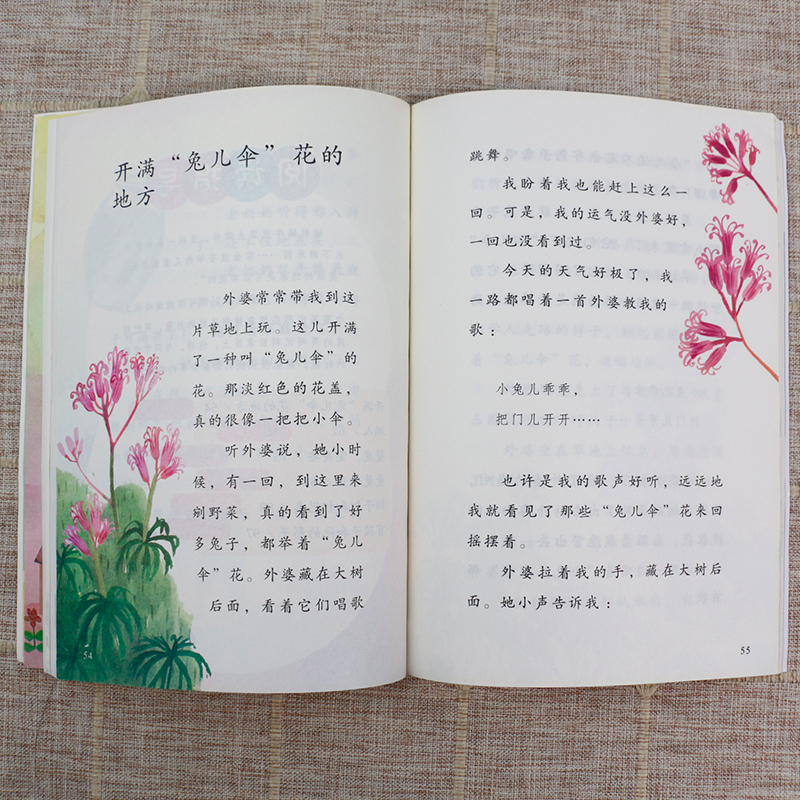 开满“兔儿伞”花的
地方
外婆常常带我到这
片草地上玩。这儿开满
了一种叫“兔儿伞”的
花。那淡红色的花盖，
真的很像一把把小伞。
听外婆说，她小时
候，有一回，到这里来
剜野菜，真的看到了好
多兔子，都举着“兔儿
伞”花。外婆藏在大树
后面，看着它们唱歌
54
跳舞。
我盼着我也能赶上这么一
回。可是，我的运气没外婆好，
一回也没看到过。
今天的天气好极了，我
一路都唱着一首外婆教我的
歌：
小兔儿乖乖，
把门儿开开……
也许是我的歌声好听，远远地
我就看见了那些“兔儿伞”花来回
摇摆着。
外婆拉着我的手，藏在大树后
面。她小声告诉我：
55